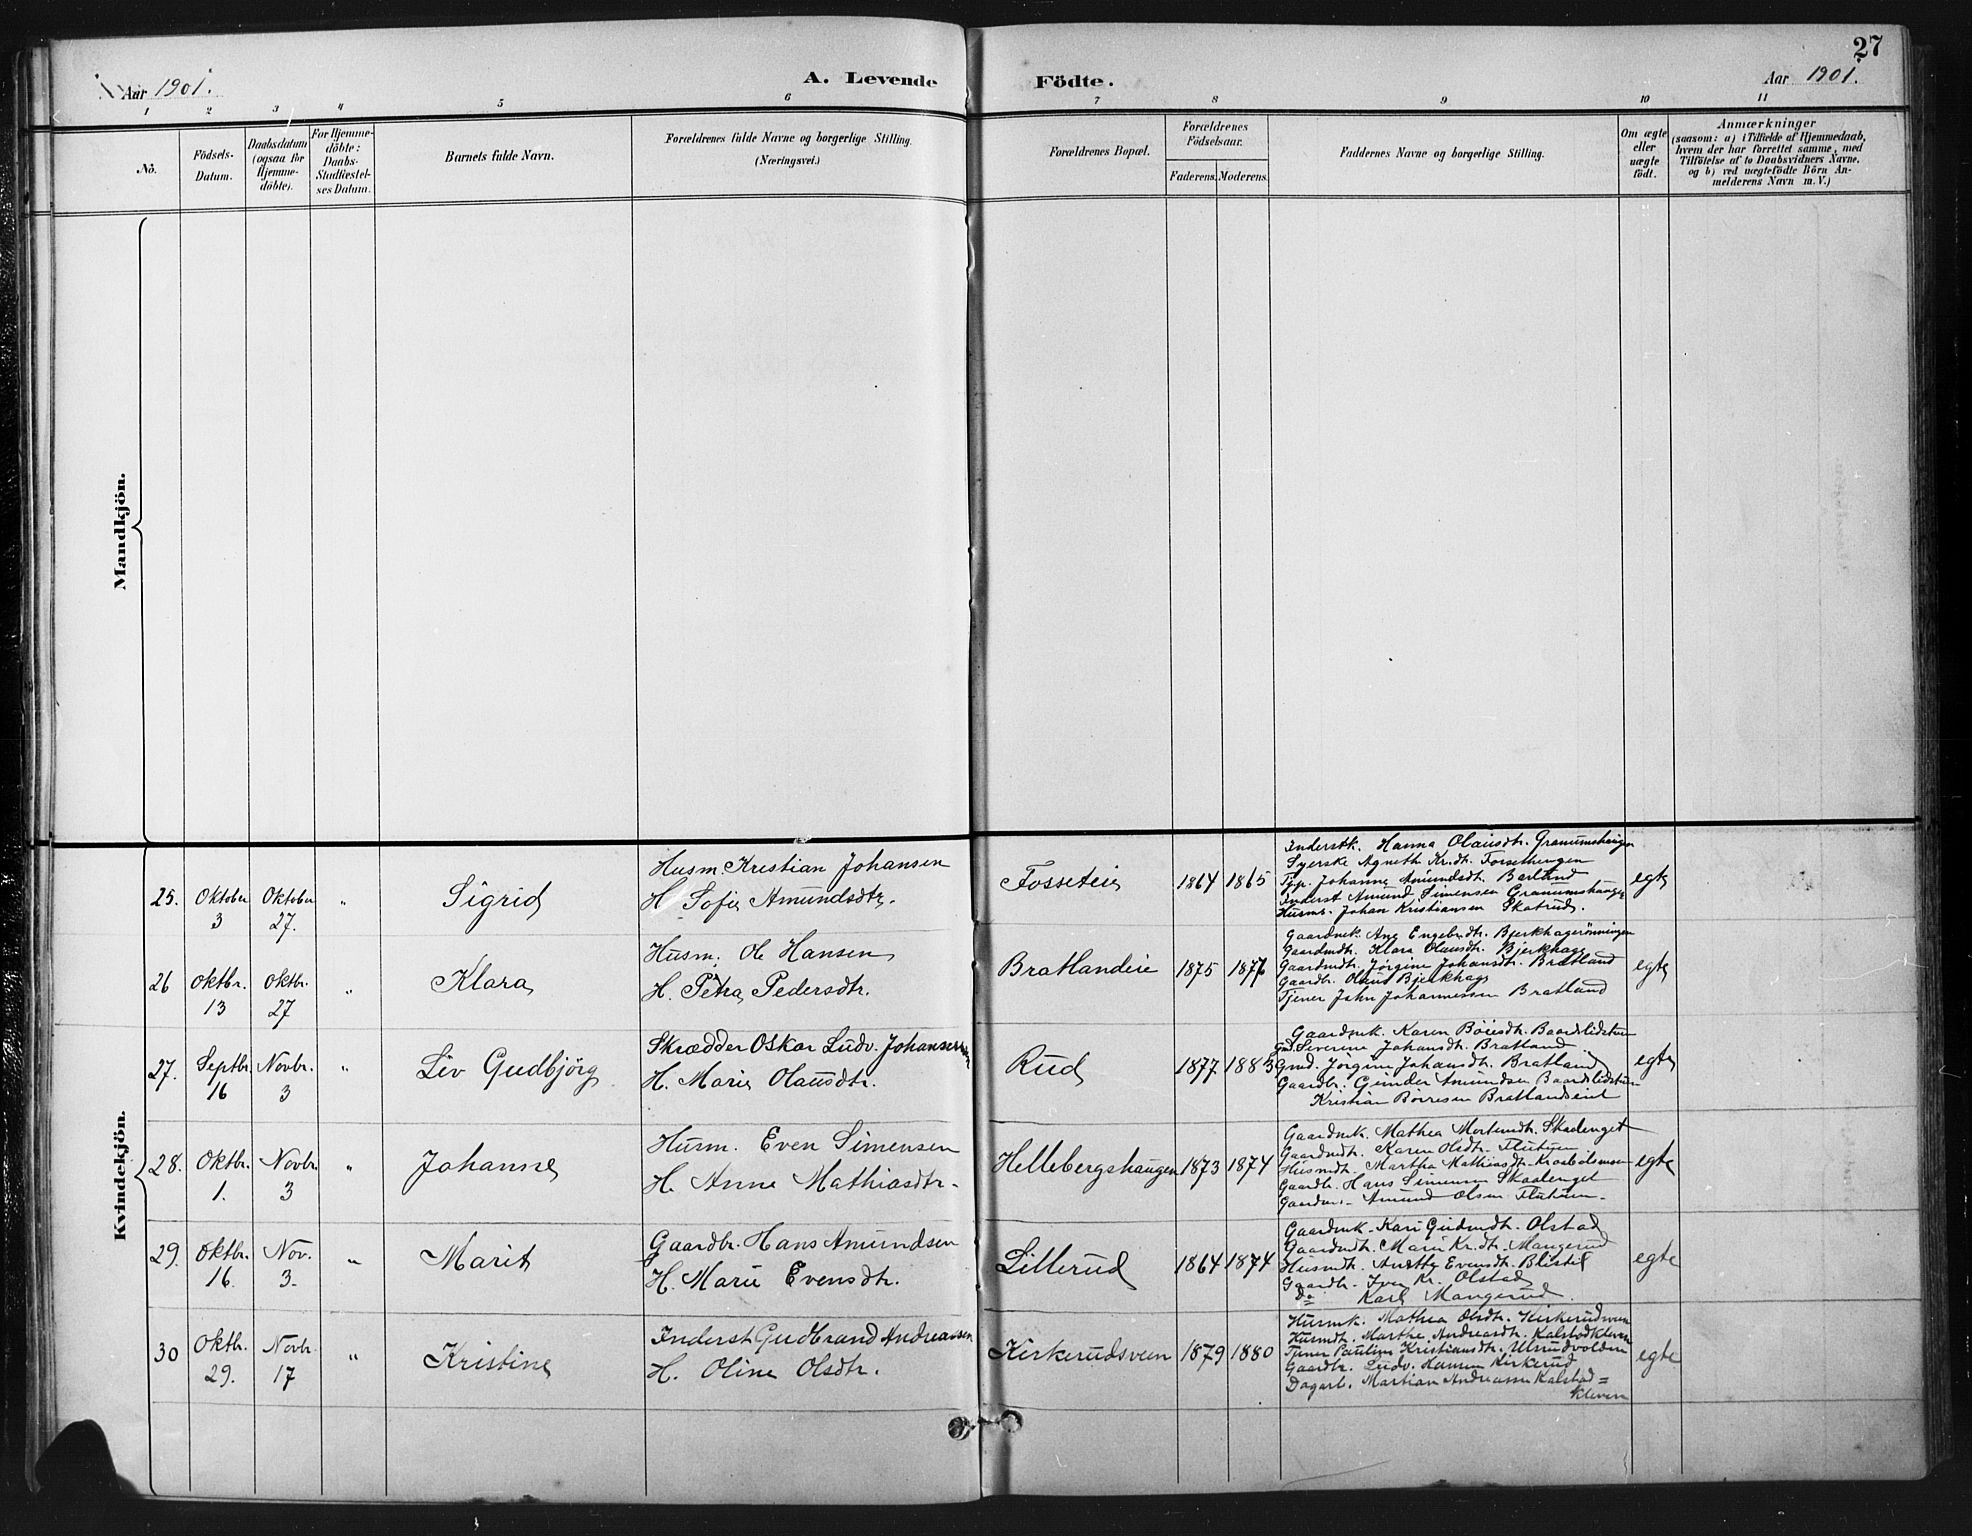 27
Aar 1901.
A. Levende
Födte.
Aar 1901.
1 2 3 4 5 6 7 8 9 10 11
No.
Födsels-
Datum.
Daabsdatum
(ogsaa for
Hjemme-
döbte).
For Hjemme-
döbte:
Daabs-
Stadfæstel-
ses Datum.
Barnets fulde Navn.
Forældrenes fulde Navne og borgerlige Stilling.
(Næringsvei.)
Forældrenes Bopæl.
Forældrenes
Födselsaar.
Faderens. Moderens.
Faddernes Navne og borgerlige Stilling.
Om ægte
eller
uægte
födt.
Anmærkninger
(saasom: a) i Tilfælde af Hjemmedaab,
hvem der har forrettet samme, med
Tilföielse af to Daabsvidners Navne,
og b) ved uægtefödte Börn An-
melderens Navn m. V.)
Mandkjön.
Kvindekjön.
25. Oktober
3
Oktober
27.
"
Sigrid
Husm. Kristian Johansen
H. Sofie Amundsdtr.
Fosseteie
1864 1865
Inderstk. Hanna Olausdtr. Granumshaugen
Syerske Agneth Kr.dtr. Forsethengen
Johanne Amundsdt. Bratland
Inderst Amund Simensen Granumshaugen
Husms. Johan Kristiansen Skatrud.
egte
26 Oktbr.
13
Oktbr.
27
"
Klara
Husm. Ole Hansen
H. Petra Pedersdtr.
Bratlandeie
1875 1877
Gaardmk. Ane Engebrdtr. Bjerkhagerönningen
Gaardmdtr. Klara Olausdtr. Bjerkhage
Gaardmdtr. Jörgine Johansdtr. Bratland
Gaardbr. Olaus Bjerkhage
Tjener John Johannessen Bratland
egte
27. Septbr.
16
Novbr.
3
"
Liv Gudbjörg
Skrædder Oskar Ludv. Johansen
H. Marie Olausdtr.
Rud
1877 1883
Gaardmk. Karen Böisdtr. Baardslistuen
Gmd. Severine Johansdtr. Bratland
Gmd. Jörgine Johansdtr. Bratland
Gaardbr. Gunder Amundsen Baardslistuen
Kristian Börresen Bratlandseie
egte
28. Oktbr.
1.
Novbr.
3
"
Johanne
Husm. Even Simensen
H. Anne Mathiasdtr.
Hellebergshaugen
1873 1874
Gaardmk. Mathea Mortensdtr. Skadenget
Gaardmdtr. Karen Olsdtr. Flutuen
Husmdtr. Martha Mathiasdtr.
Gaardbr. Hans Simensen Skadenget
Amund Olsen Flutuen.
egte
29. Oktbr.
16.
Nov.
3.
"
Marit
Gaardbr. Hans Amundsen
H. Marie Evensdtr.
Lillerud
1864 1874
Gaardmk. Kari Gudmdtr. Olstad
Gaardmdtr. Marie Kr.dtr. Mangerud
Husmdtr. Anette Evensdtr.
Gaardbr. Iver Kr. Olstad
Do Karl Mangerud.
egte
30 Oktbr.
29.
Novbr.
17
"
Kristine
Inderst Gudbrand Andreasen
H. Oline Olsdtr.
Kirkerudsveen
1879 1880
Husmk. Mathea Olsdtr. Kirkerudsveen
Husmdtr. Marthe Andreasdtr. Kalstadkleven
Tjener Pauline Kristiansdtr. Ulsrudvolden
Gaardbr. Ludv. Hansen Kirkerud
Dagarb. Martian Andreasen Kalstad=
kleven
egte